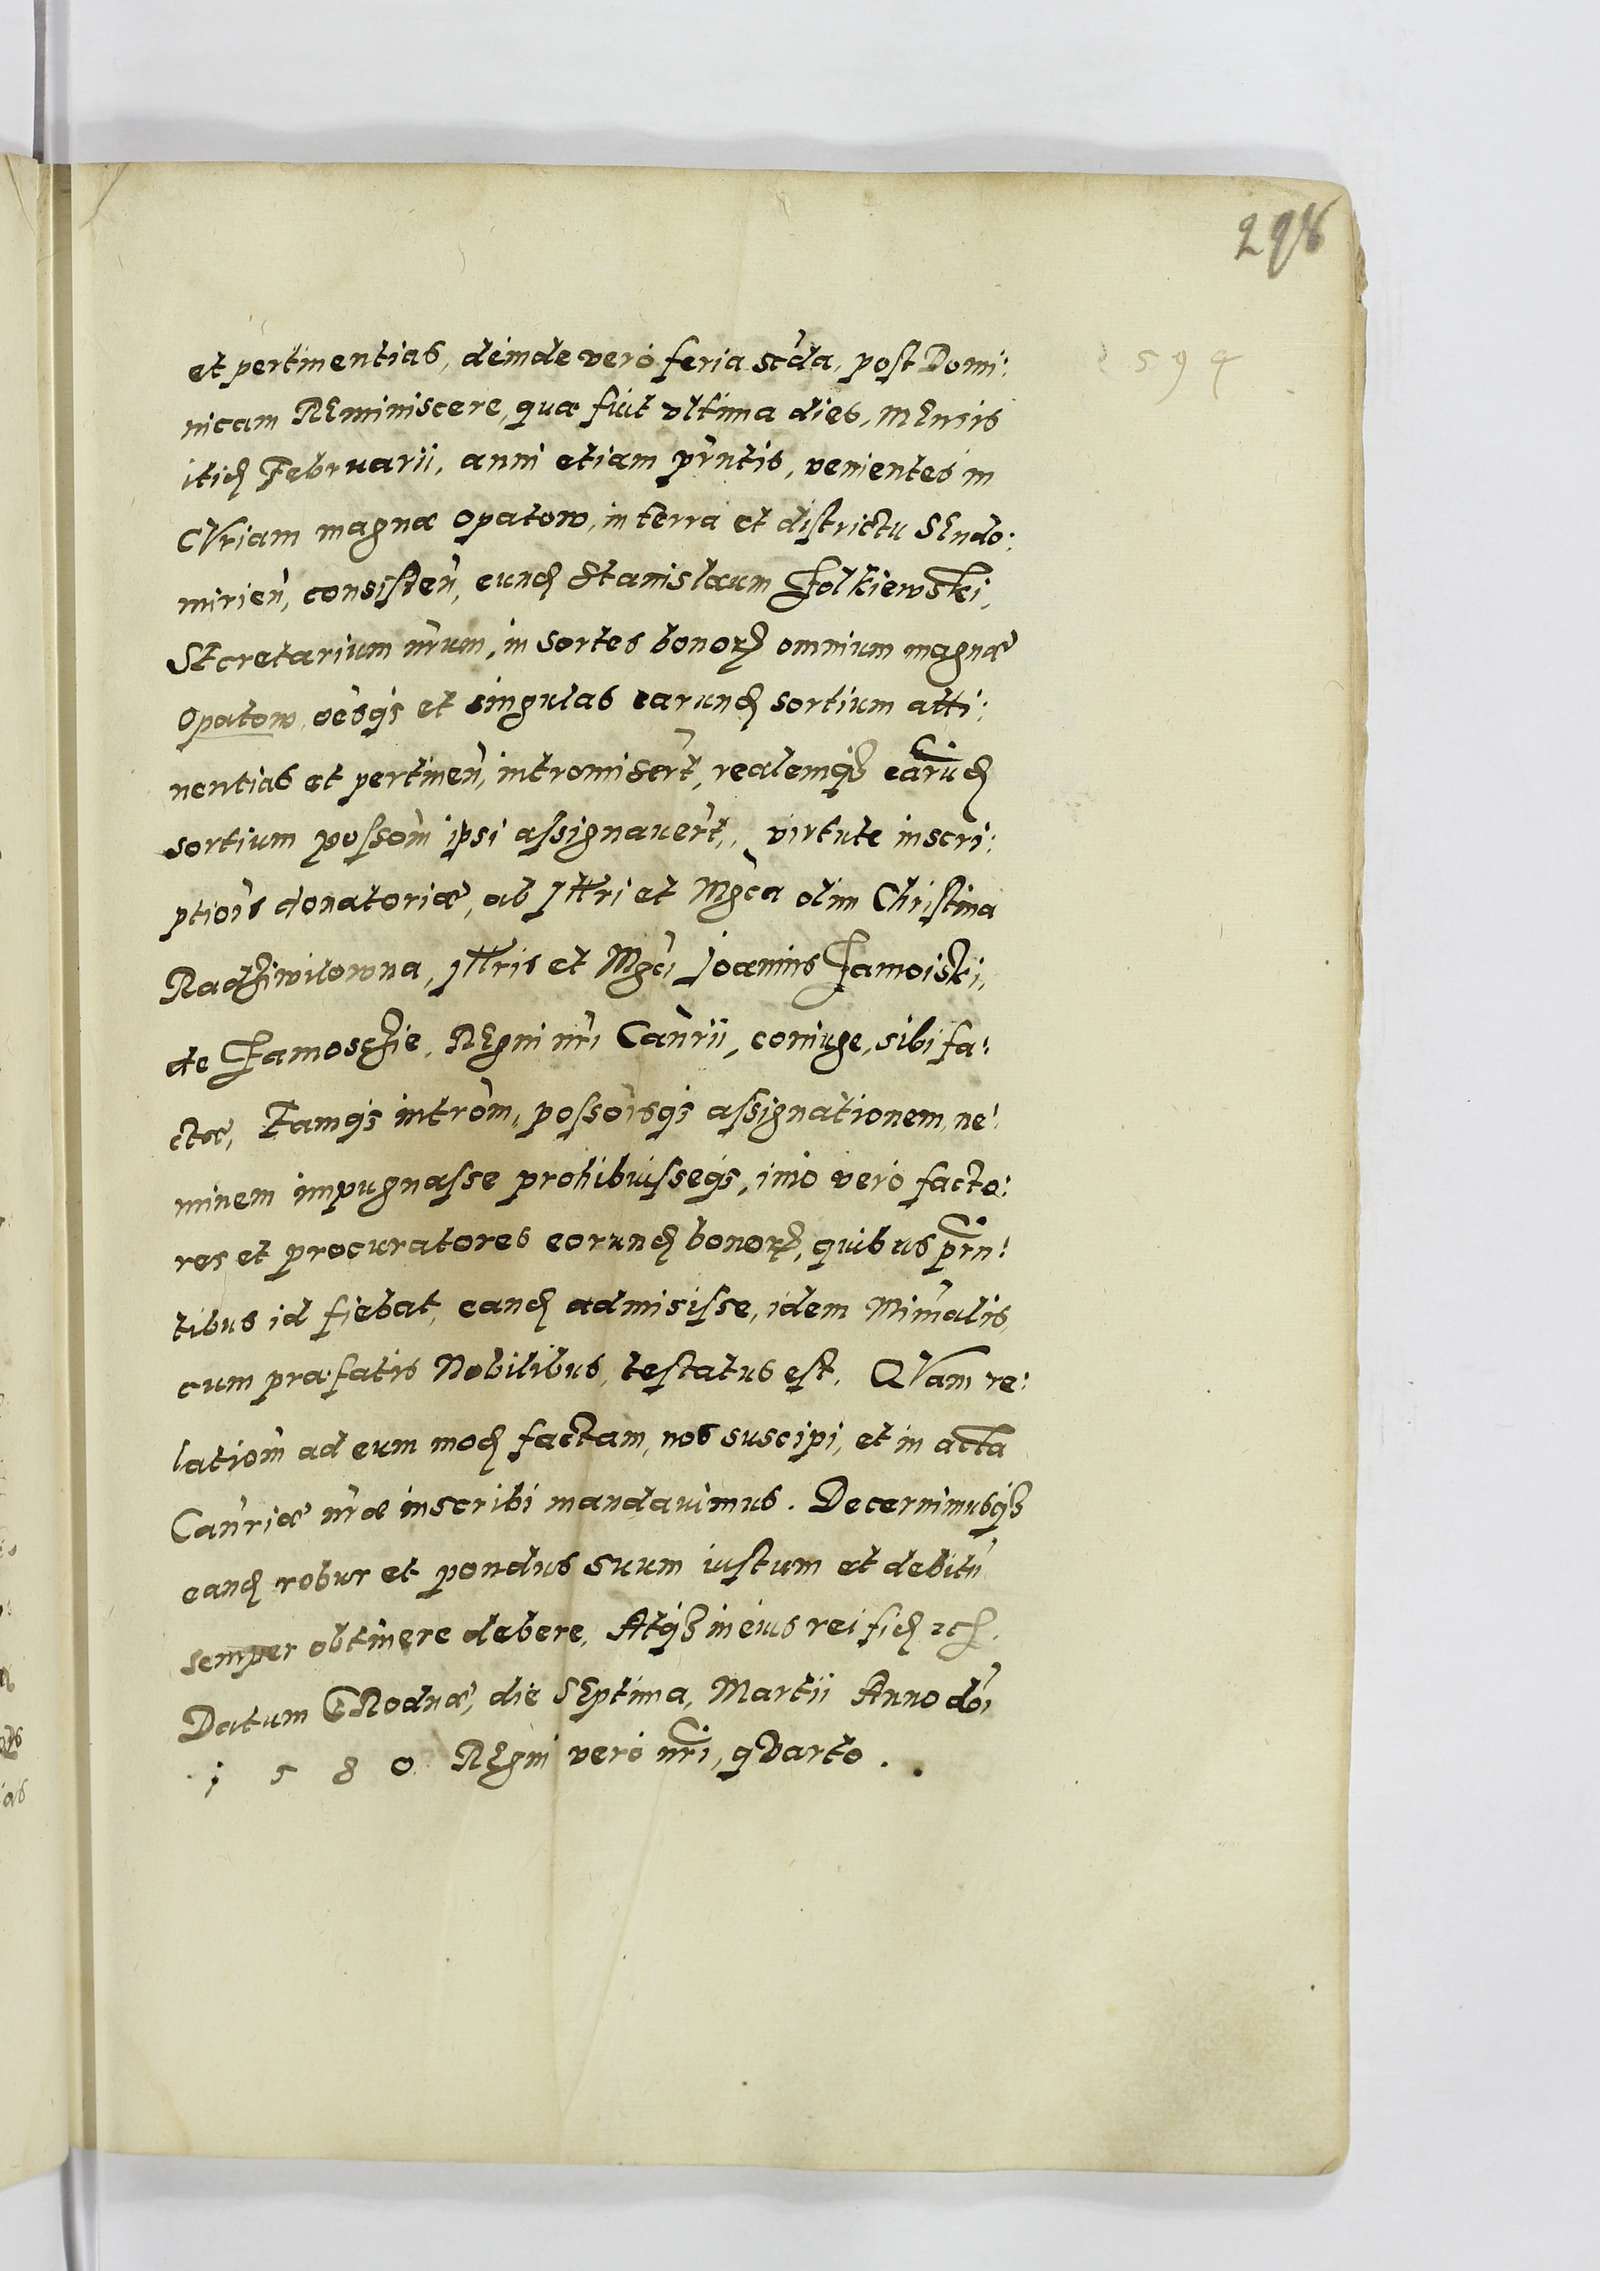 298
et pertinentias, deinde vero feria scda, post Domi:
nicam REminiscere, quæ fuit vltima dies, mEnsis
itid Februarii, anni etiam pn̄tis, venientes in
CVriam magnæ Opatow, in terra et districtu SEndo:
mirien̄, consisten̄, eund Stanislaum Zolkiewski,
SEcretarium nr̄um, in sortes bonorꝝ omnium magnæ
Opatow, oēsqꝫ et singulas earund sortium atti:
nentias et pertinen̄, intromiserūt, realemqꝫ earūd
sortium possom̄ ipsi assignauerūt, virtute inscri:
ptiois donatoriæ, ab Jllri et Mgca olim Christina
Radziwilowna, Jllris et Mgci Joannis Zamoiski,
de Zamosczie, REgni nr̄i Can̄rii, coniuge, sibi fa:
ctæ, Eamqꝫ introm̄, possoisqꝫ assignationem, ne:
minem impugnasse prohibuisseqꝫ, imo vero facto:
res et procuratores eorund bonorꝝ, quibus prn̄:
tibus id fiebat, eand admisisse, idem Min̄alis,
cum præfatis Nobilibus, testatus est. QVam re:
latiom̄ ad eum mod factam, nos suscipi, et in acta
Can̄riæ nr̄æ inscribi mandauimus. Decernimusqꝫ
eand robur et pondus suum iustum et debitū
semper obtinere debere. Atqꝫ in eius rei fid etc.
Datum GRodnæ, die SEptima, Martii Anno doi
1 5 8 0 REgni vero nr̄i, qVarto.